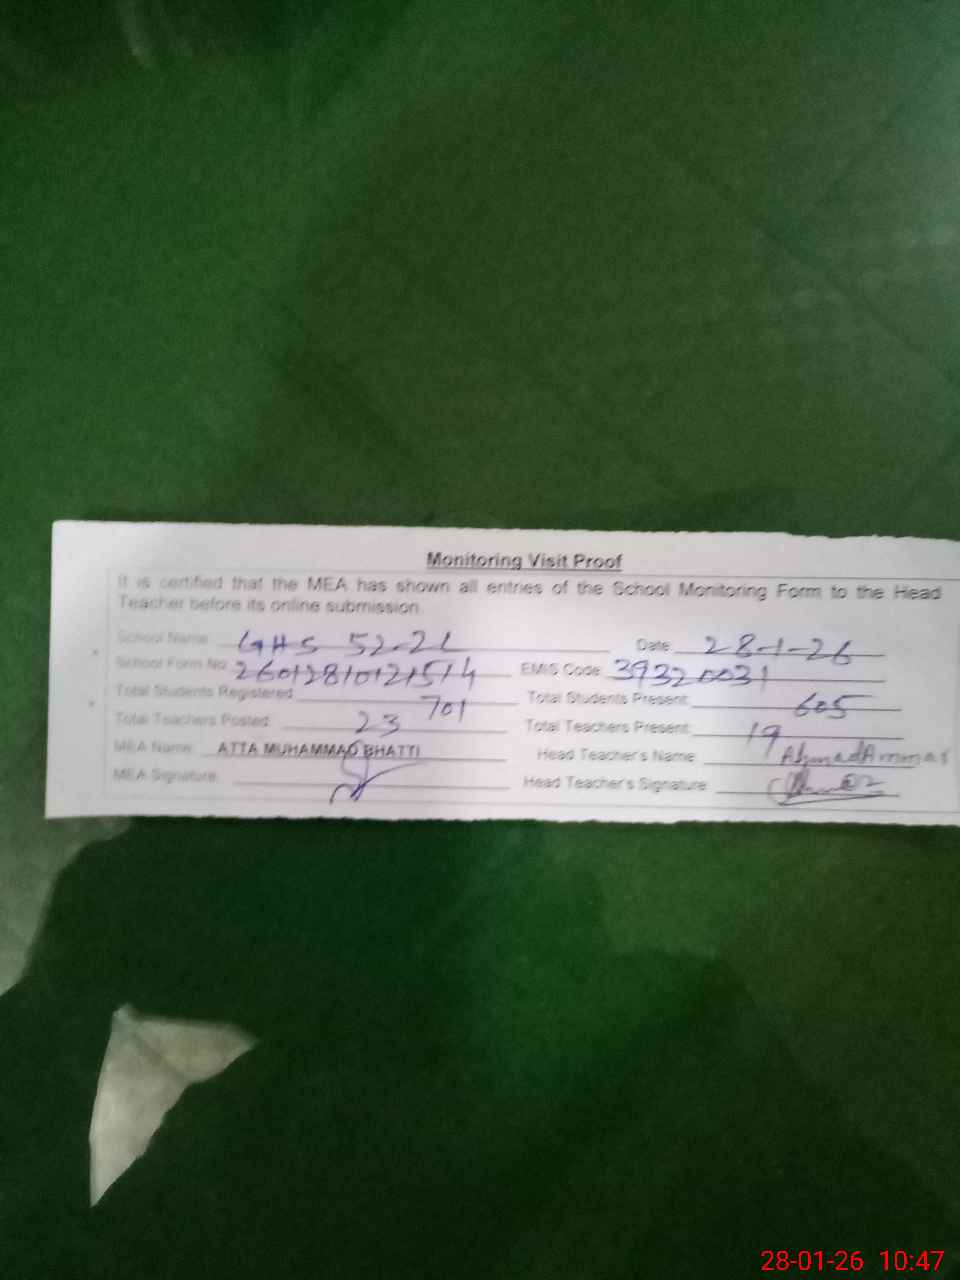 Monitoring Visit Proof
It is certified that the MEA has shown all entries of the School Monitoring Form to the Head
Teacher before its online submission.
School Name GHS 52-2L Date 28-1-26
School Form No 26012810121514 EMIS Code 39320031
Total Students Registered 701 Total Students Present 605
Total Teachers Posted 23 Total Teachers Present 19
MEA Name ATTA MUHAMMAD BHATTI Head Teacher's Name Ahmad Ammar
MEA Signature Head Teacher's Signature
28-01-26 10:47